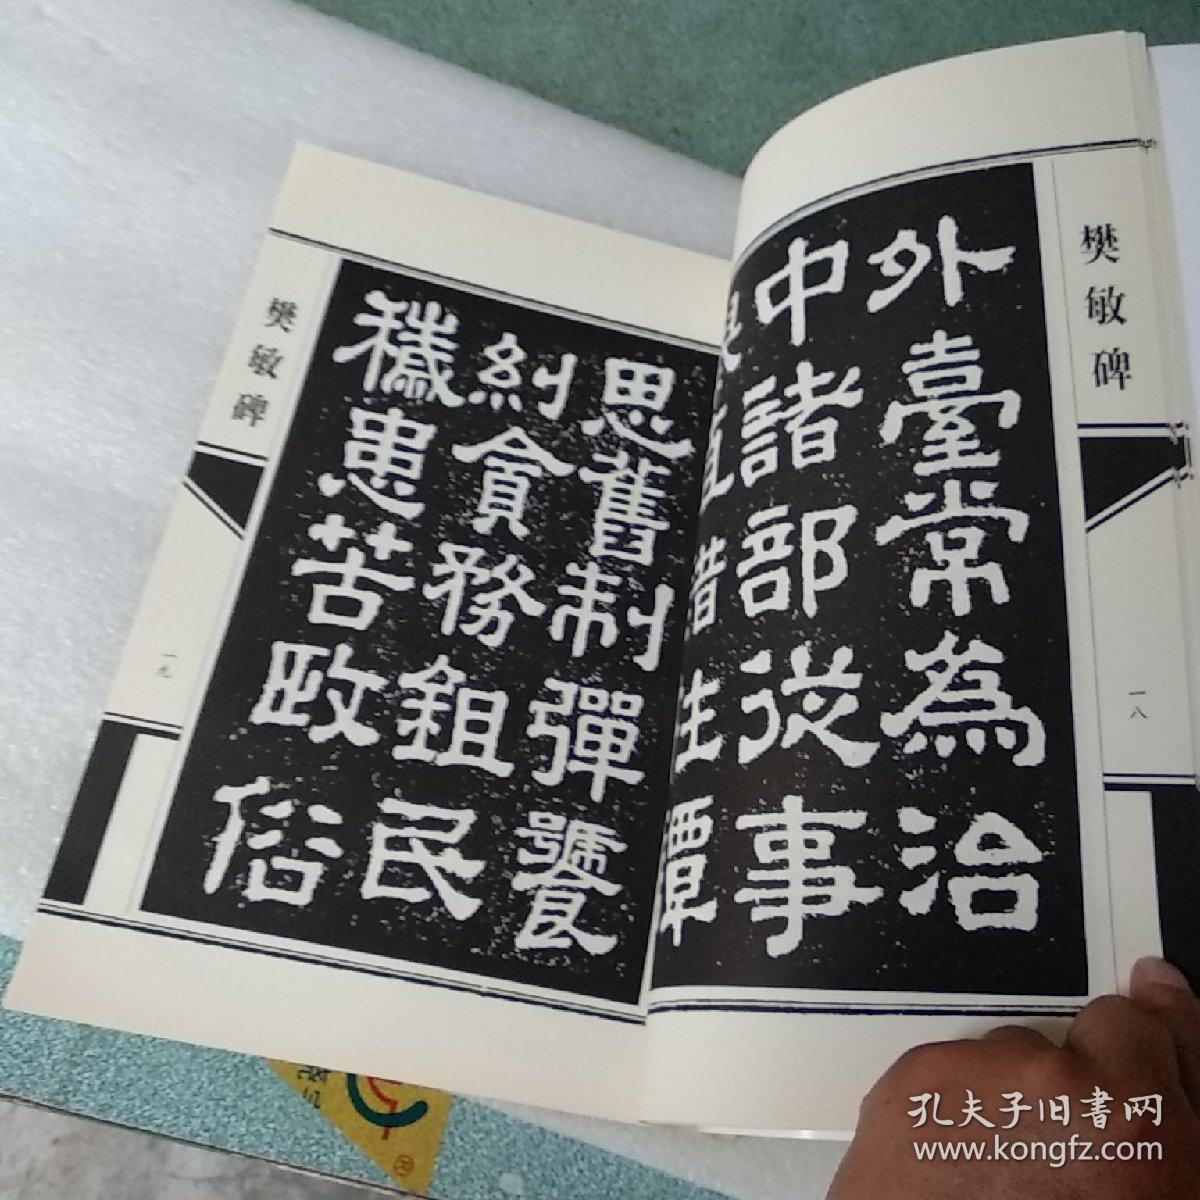 樊敏碑
一八
外臺常為治
中諸部從事
思舊制彈饕
糾貪務鉏民
穢患苦政俗
樊敏碑
一九
孔夫子旧書网
www.kongfz.com